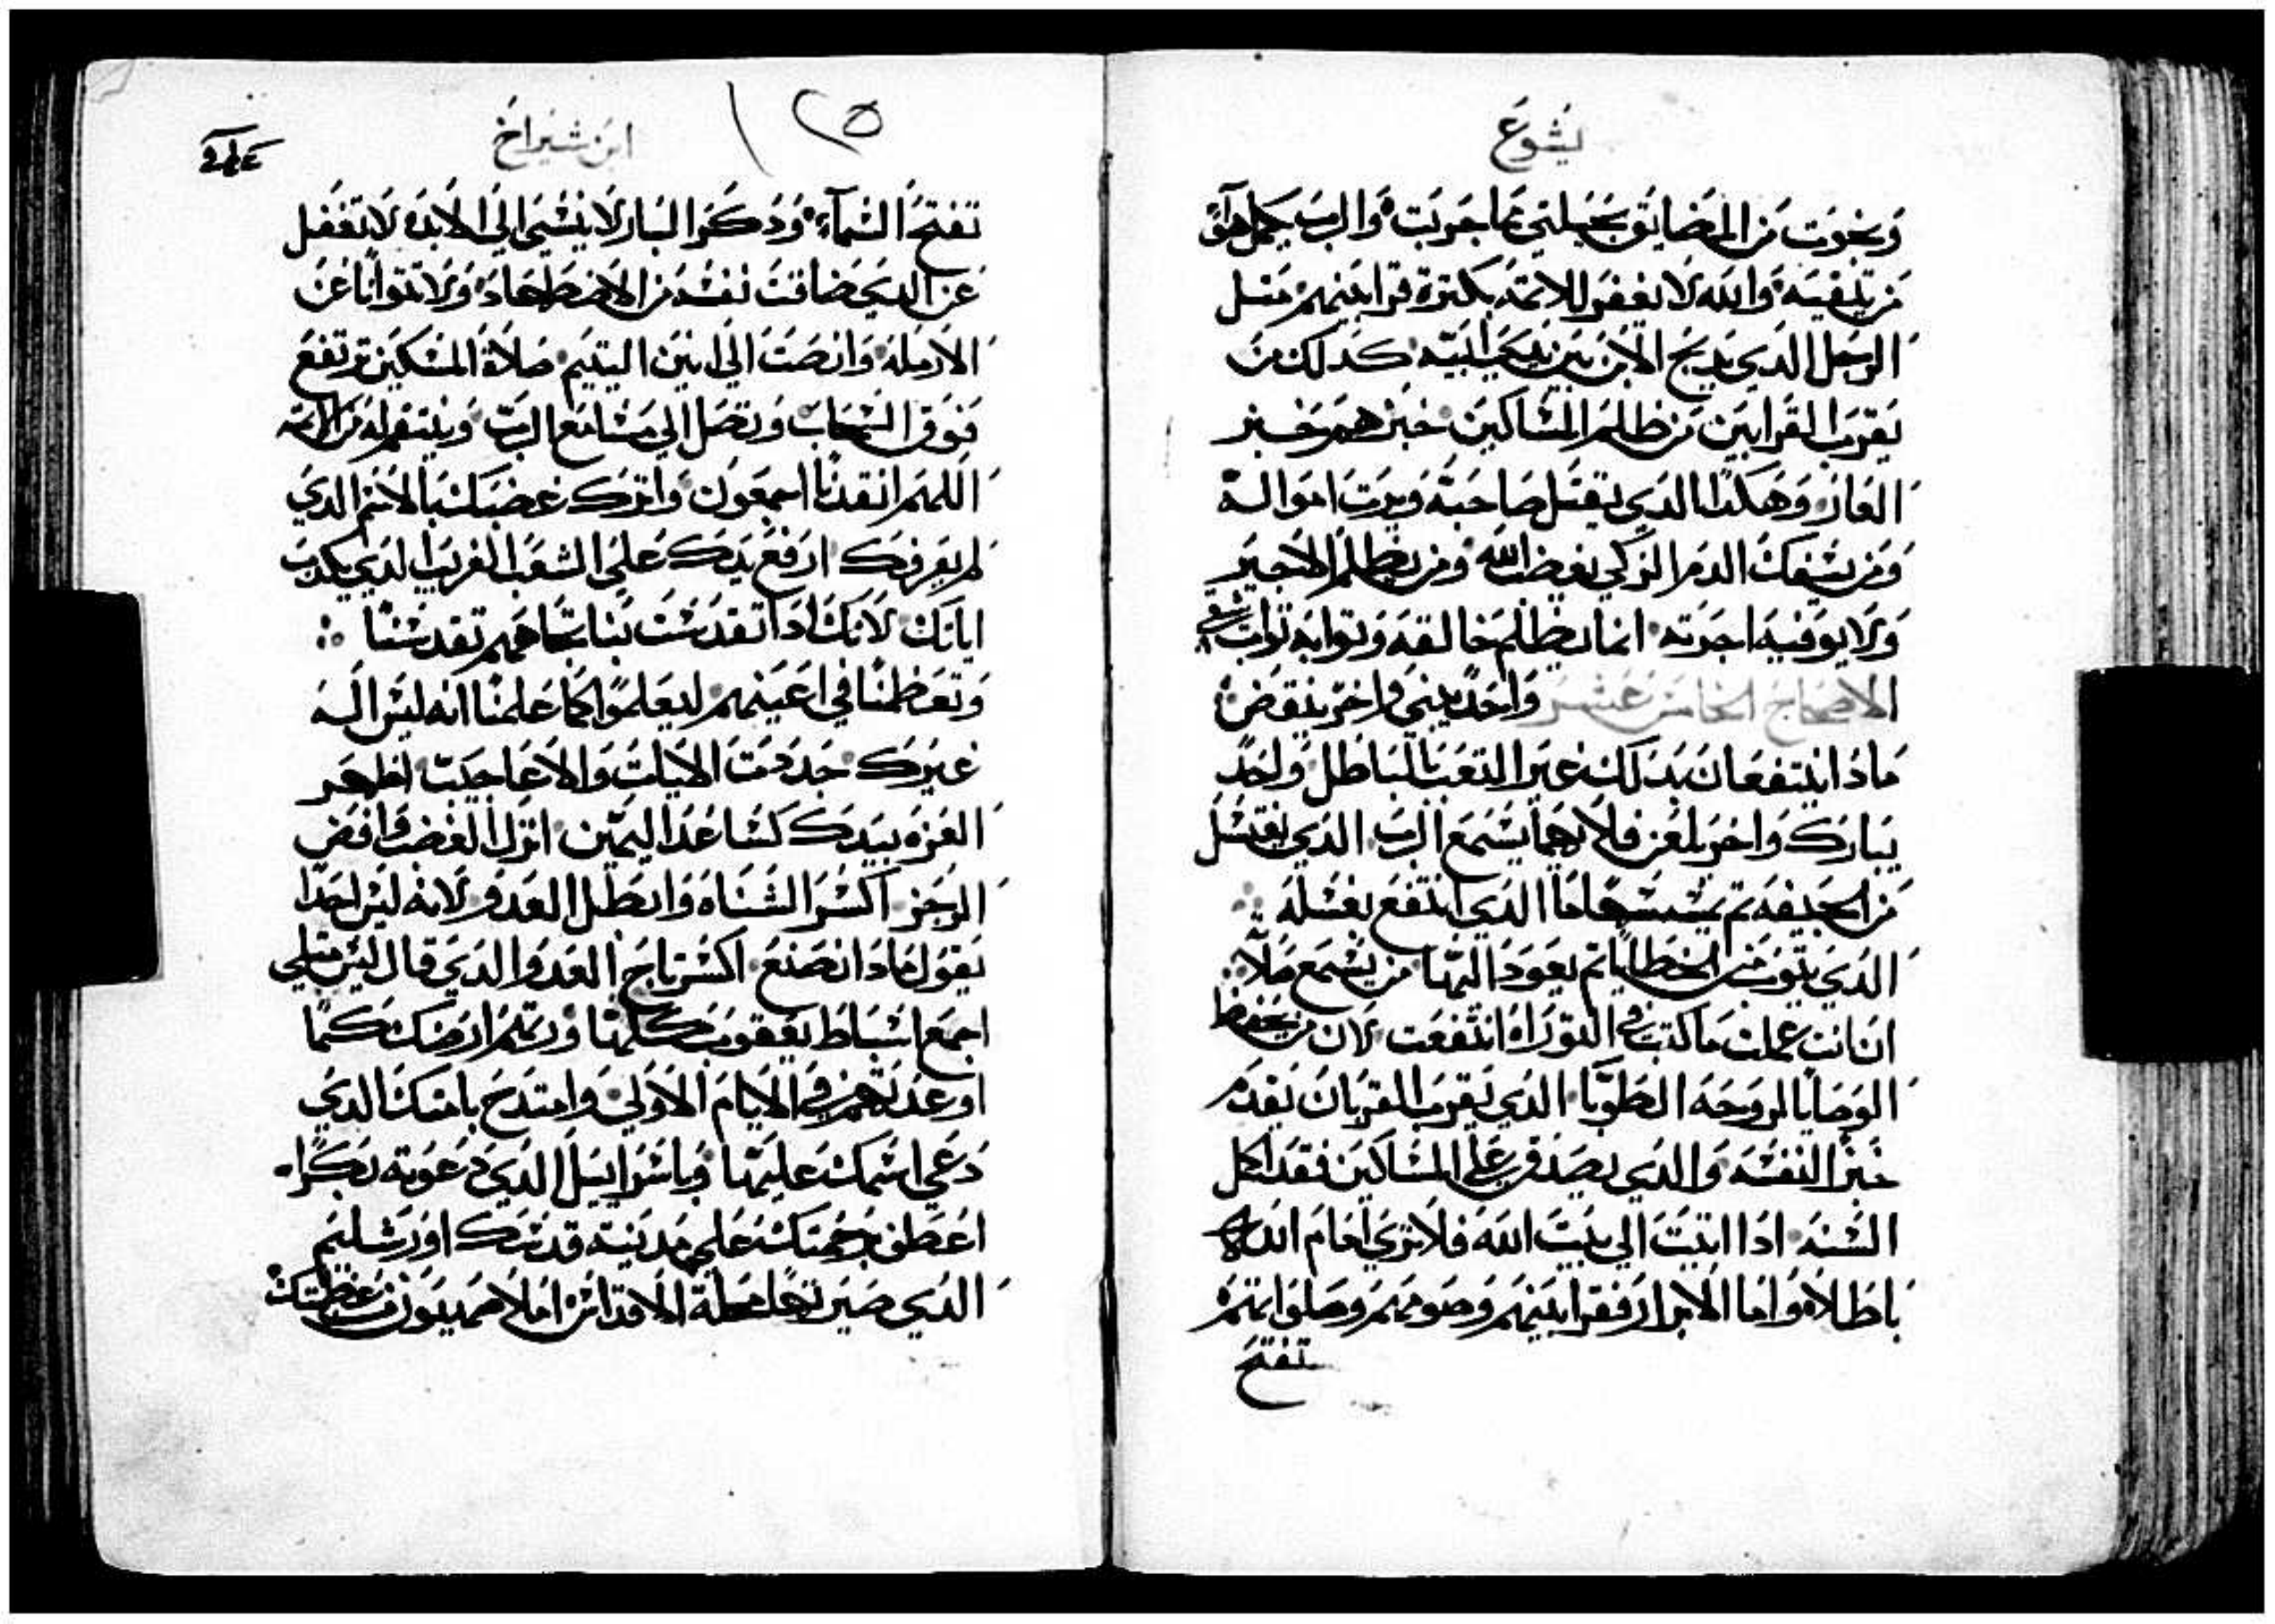 يشوع
ونجوت من المضايق بحيلتي بما جربت والرب يكمل هوي
من يتقيه والله لا يغفر للاتمه بكترة قرابينهم متل
الرجل الدي يدبح الابن بين يدي ابيه كدلك من
يقرب القرابين من ظلم المساكين خبزهم خبز
العاز وهكدا الدي يقتل صاحبه ويرت امواله
ومن يسفك الدم الزكي يغيض الله ومن يظلم الاجير
ولا يوفيه اجرته انما يظلم خالقه وتوابه تواب
الاصحاح الخامس عشر واحد يبني واخر ينقض
مادا ينتفعان بدلك غير التعب بالباطل واحد
يبارك واخر يلعن فلايهما يسمع الرب الدي يغتسل
من الجيفه تم يمسها ما الدي انتفع بغسله
الدي يتوب من الخطايا تم يعود اليها من يسمع صلاته
ان انت عملت ما كتب في التوراه انتفعت لان من يحفظ
الوصايا لروحه الطوبا الدي يقرب القربان يقدم
خبزا لنفسه والدي يصدق علي المساكين فقد اكمل
السنه ادا اتيت الي بيت الله فلا تري امام الله
باطلا واما الابرار فقرابينهم وصومهم وصلواتهم
تفتح
ابن شيراخ
١٢٥
تفتح السماء ودكر البار لا ينسي الي الابد لا تغفل
عن الدي ضاقت نفسه من الاضطهاد ولا تتوانا عن
الارمله وانصت الي انين اليتيم صلاة المسكين ترتفع
فوق السحاب وتصل الي مسامع الرب وينتقم له من الاتمه
اللهم انقدنا اجمعون واترك غضبك بالامم الدي
لم يعرفك ارفع يدك علي الشعب الغريب الدي يكدب
اياتك لانك ادا تقدست بنا تجاههم تقدسنا
وتعظمنا في اعينهم ليعلموا كما علمنا انه ليس اله
غيرك جدد الايات والاعاجيب اظهر
العزه بيدك كساعد اليمين انزل الغضب وافض
الرجز اكسر الشناه وابطل العدو لانه ليس احدا
يقول مادا تصنع اكسر تاج العدو الدي قال ليس متلي
اجمع اسباط يعقوب كلها ورتهم ارضك كما
اوعدتهم في الايام الاولي وامتدح بامتك الدي
دعي اسمك عليها وباسراييل الدي دعوته بكرا
اعطف برحمتك علي مدينة قدسك اورشليم
الدي صير تحل محلة الاقداس املا صهيون من عظمتك